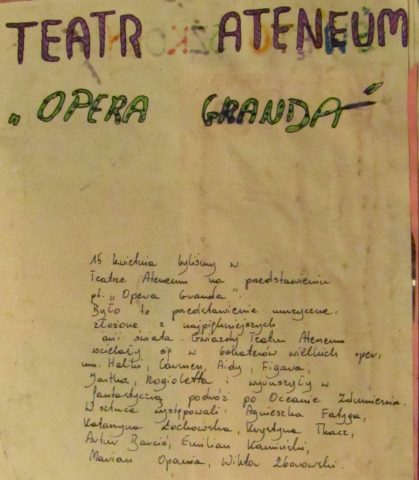 TEATR ATENEUM
„OPERA GRANDA"
15 kwietnia byliśmy w
Teatrze Ateneum na przedstawieniu
pt. „Opera Granda".
Było to przedstawienie muzyczne
złożone z najpiękniejszych
arii świata. Gwiazdy Teatru Ateneum
wcielały się w bohaterów wielkich oper,
m.in. Halki, Carmen, Aidy, Figara,
Jontka, Rigoletta i wyruszyły w
fantastyczną podróż po Oceanie Zdumienia.
W sztuce występowali: Agnieszka Fatyga,
Katarzyna Żochowska, Krystyna Tkacz,
Artur Barciś, Emilian Kamiński,
Marian Opania, Wiktor Zborowski.